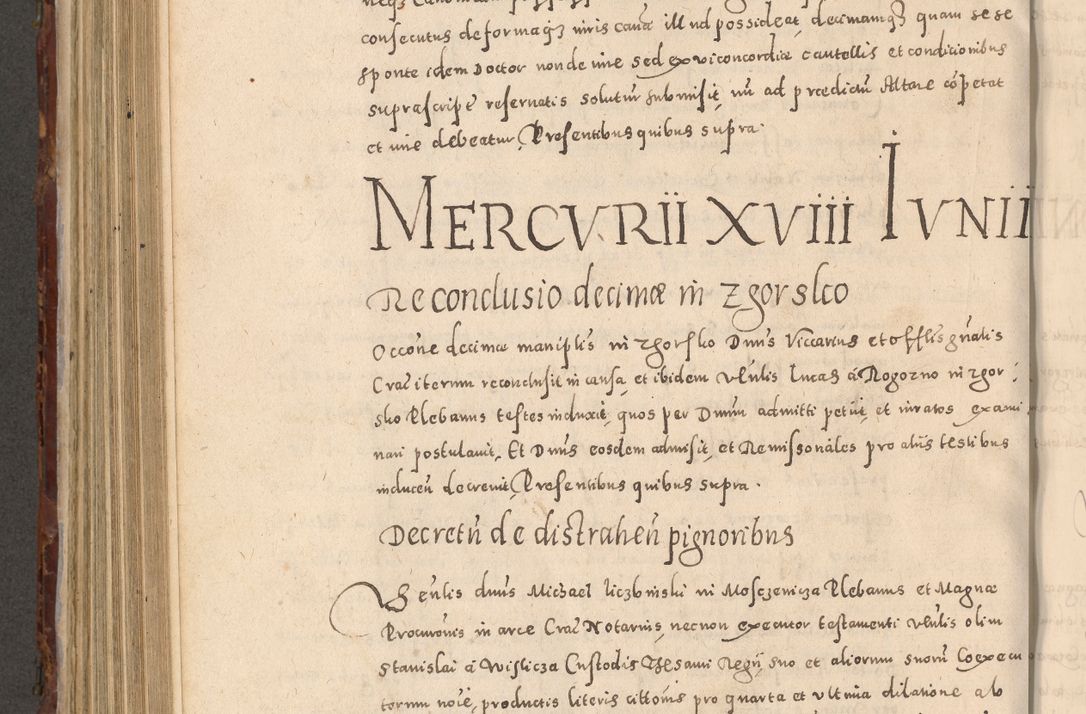 consecutus de formaq3 iuris causa illud possideat, decimamq3 quam se se
sponte idem Doctor non de iure sed ex vi concordiæ cautellis et conditionibus
suprascript reseruatis solutur submisit, nu ad prædictu Altare copetat
et iure debeatur, Presentibus quibus supra.
MERCVRII XVIII IVNII
Reconclusio decimæ in Zgorsko
Occone decimæ maniplis in Zgorsko Dnus Viccarius et offlis gnalis
Crac iterum reconclusit in causa, et ibidem Vlnlis Lucas a Rogozno in zgor
sko Plebanus testes induxit, quos per Dnum admitti petiit, et iuratos exami
nari postulauit, Et Dnus eosdem admisit, et Remissonales pro aliis testibus
inducen decreuit, Presentibus quibus supra.
Decretu de distrahen pignoribus
Venlis dnus Michael liczbinski in Mosczenicza Plebanus et Magnæ
Procuronis in arce Crac Notarius, necnon executor testamenti Vlnlis olim
Stanislai a Wislicza Custodis Thesauri Regij, suo et aliorum suoru Coexecu
torum noie, productis literis cittonis pro quarta et vltima dilatione ab